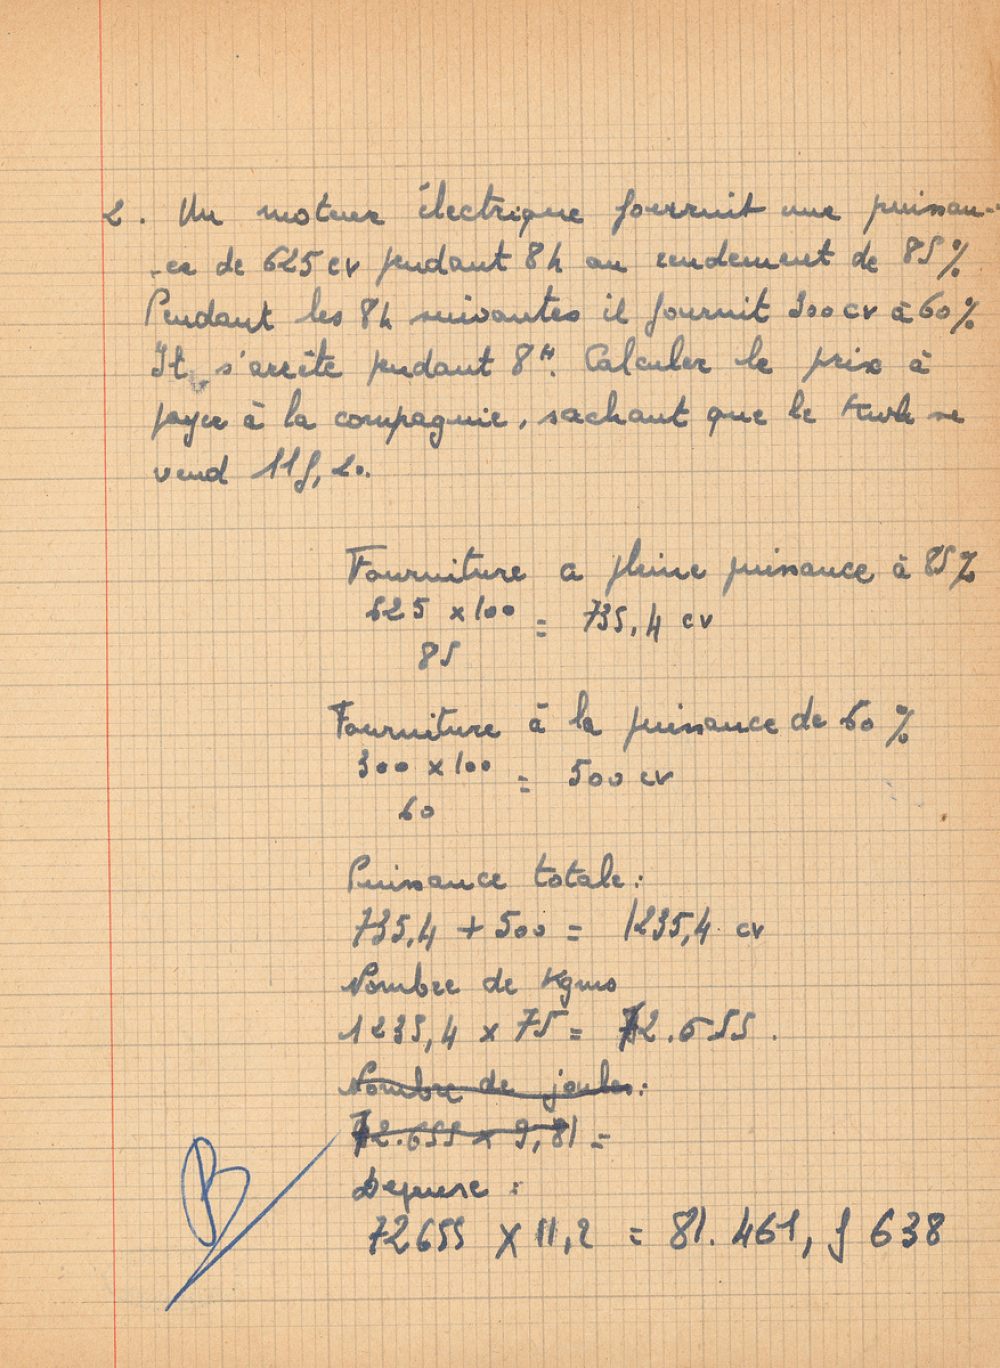 2. Un moteur électrique fournit une puissan-
-ce de 625 cv pendant 8h au rendement de 85%
Pendant les 8h suivantes il fournit 300 cv à 60%
Il s'arrête pendant 8H. Calculer le prix à
payer à la compagnie, sachant que le Kwh se
vend 11f,20.
Fourniture a pleine puissance à 85%
625 x 100
= 735,4 cv
85
Fourniture à la puissance de 60%
300 x 100
= 500 cv
60
Puissance totale:
735,4 + 500 = 1235,4 cv
Nombre de Kgms
1235,4 x 75 = 72.655.
Nombre de joules:
72.655 x 9,81 =
Depense:
72655 X 11,2 = 81.461, f 638
B